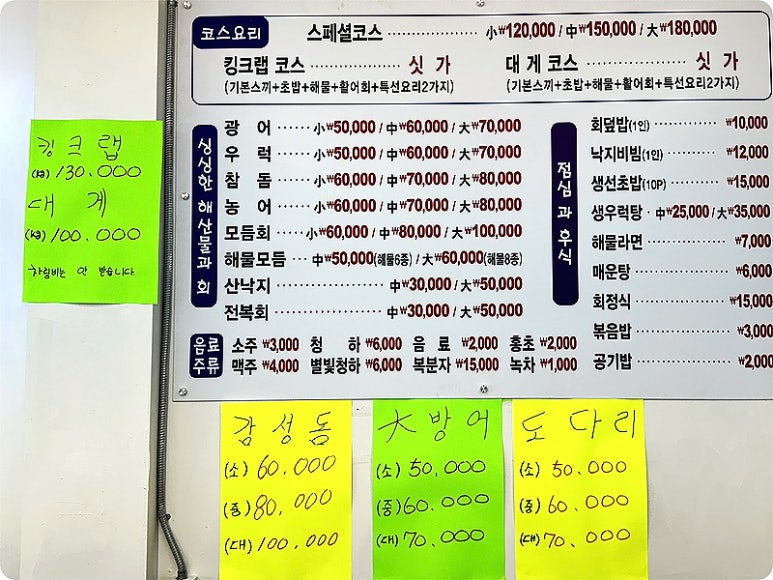 코스요리
스페셜코스 ················ 小₩120,000 / 中₩150,000 / 大₩180,000
킹크랩 코스 ·········· 싯 가
(기본스끼+초밥+해물+활어회+특선요리2가지)
대 게 코스 ············ 싯 가
(기본스끼+초밥+해물+활어회+특선요리2가지)
싱싱한 해산물과 회
광 어 ······ 小₩50,000 / 中₩60,000 / 大₩70,000
우 럭 ······ 小₩50,000 / 中₩60,000 / 大₩70,000
참 돔 ······ 小₩60,000 / 中₩70,000 / 大₩80,000
농 어 ······ 小₩60,000 / 中₩70,000 / 大₩80,000
모듬회 ····· 小₩60,000 / 中₩80,000 / 大₩100,000
해물모듬 ··· 中₩50,000(해물6종) / 大₩60,000(해물8종)
산낙지 ················ 中₩30,000 / 大₩50,000
전복회 ················ 中₩30,000 / 大₩50,000
점심과 후식
회덮밥(1인) ·············· ₩10,000
낙지비빔(1인) ··········· ₩12,000
생선초밥(10P) ·········· ₩15,000
생우럭탕 · 中₩25,000 / 大₩35,000
해물라면 ················ ₩7,000
매운탕 ·················· ₩6,000
회정식 ·················· ₩15,000
볶음밥 ·················· ₩3,000
공기밥 ·················· ₩2,000
음료
주류
소주 ₩3,000 청 하 ₩6,000 음 료 ₩2,000 홍초 ₩2,000
맥주 ₩4,000 별빛청하 ₩6,000 복분자 ₩15,000 녹차 ₩1,000
킹크랩
(kg) 130.000
대 게
(kg) 100.000
차림비는 안 받습니다
감성돔
(소) 60.000
(중) 80.000
(대) 100.000
大방어
(소) 50.000
(중) 60.000
(대) 70.000
도다리
(소) 50.000
(중) 60.000
(대) 70.000